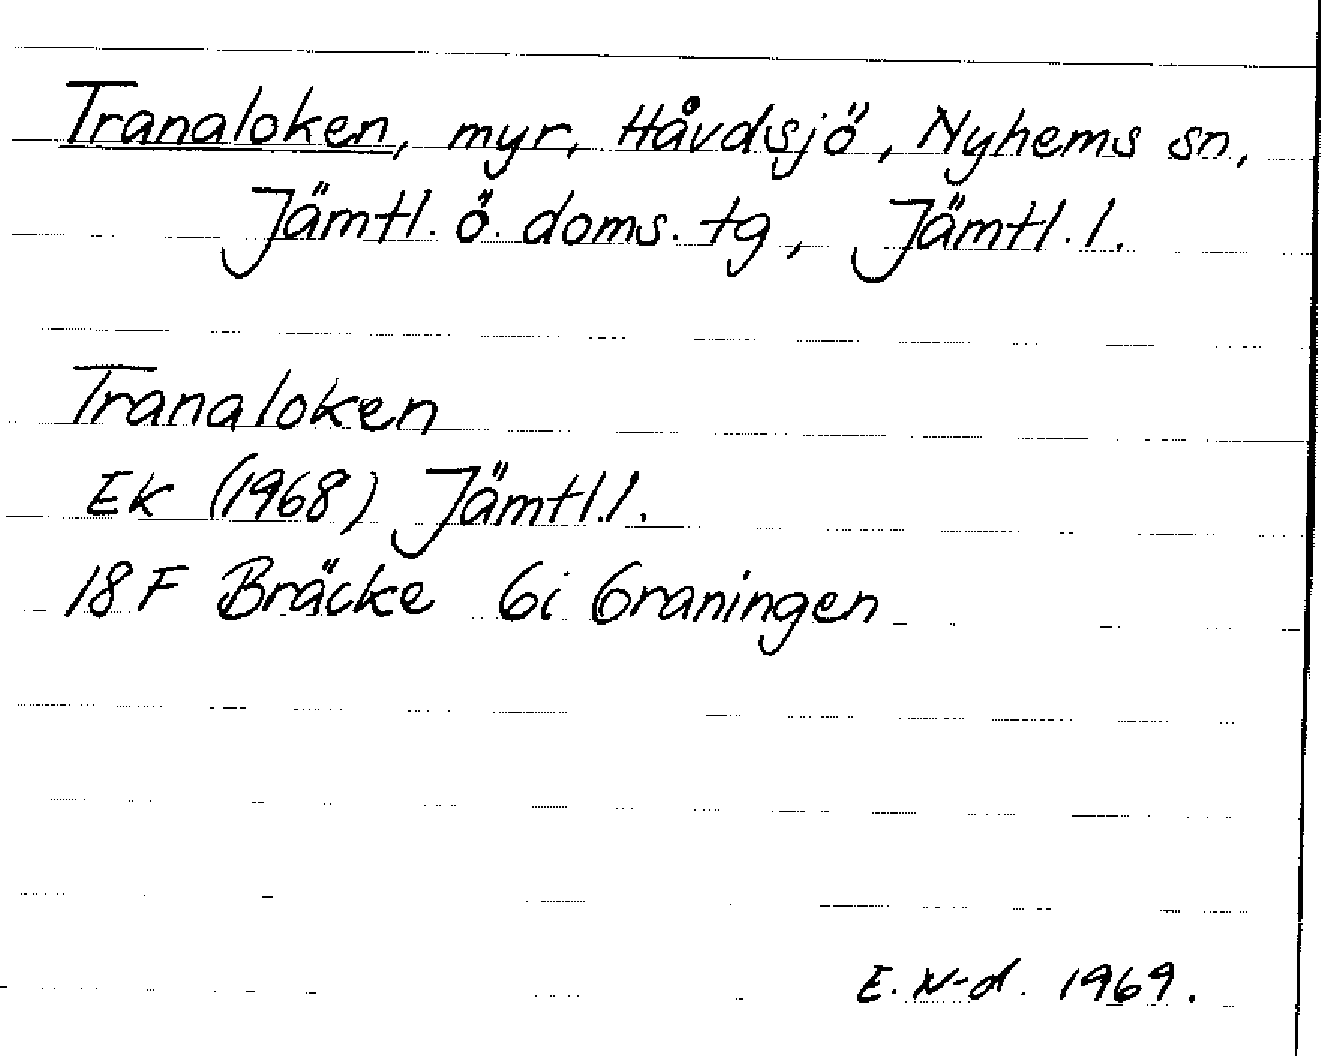 Tranaloken, myr, Håvdsjö, Nyhems sn,
Jämtl. ö. doms. tg, Jämtl. l.
Tranaloken
Ek (1968) Jämtl. l.
18 F Bräcke 6i Graningen
E. N-d. 1969.